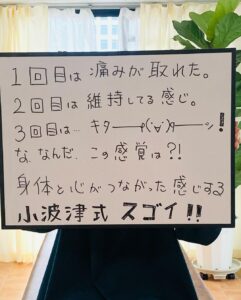 1回目は 痛みが取れた。
2回目は 維持してる感じ。
3回目は… キターーー(゚∀゚)ーーーッ!
な、なんだ、この感覚は?!
身体と心がつながった感じする
小波津式 スゴイ!!